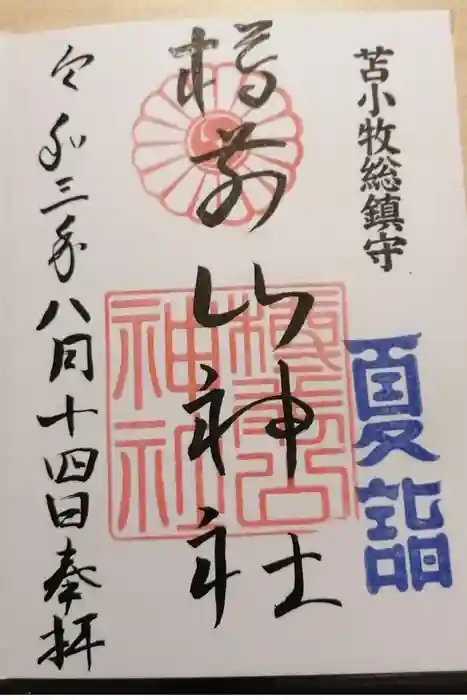 苫小牧総鎮守
夏詣
樽前山神社
樽前山神社
令和三年八月十四日奉拝